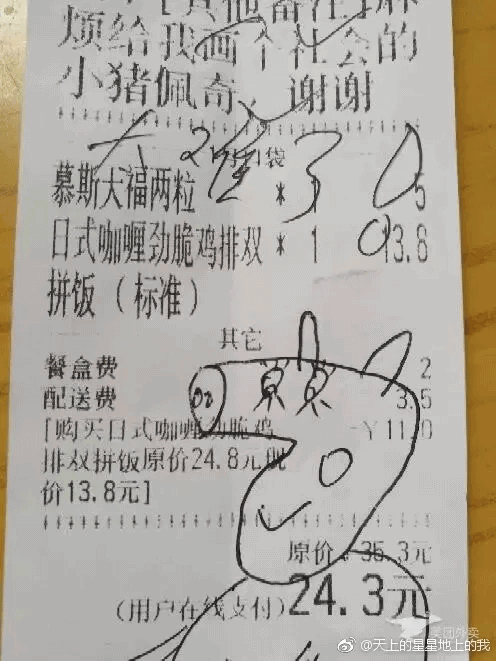 [其他备注]麻
烦给我画个社会的
小猪佩奇，谢谢
1口袋
慕斯大福两粒 * 1 5
日式咖喱劲脆鸡排双 * 1 13.8
拼饭（标准）
其它
餐盒费 2
配送费 3.5
[购买日式咖喱劲脆鸡 -￥11.0
排双拼饭原价24.8元现
价13.8元]
原价：35.3元
(用户在线支付)24.3元
美团外卖
@天上的星星地上的我